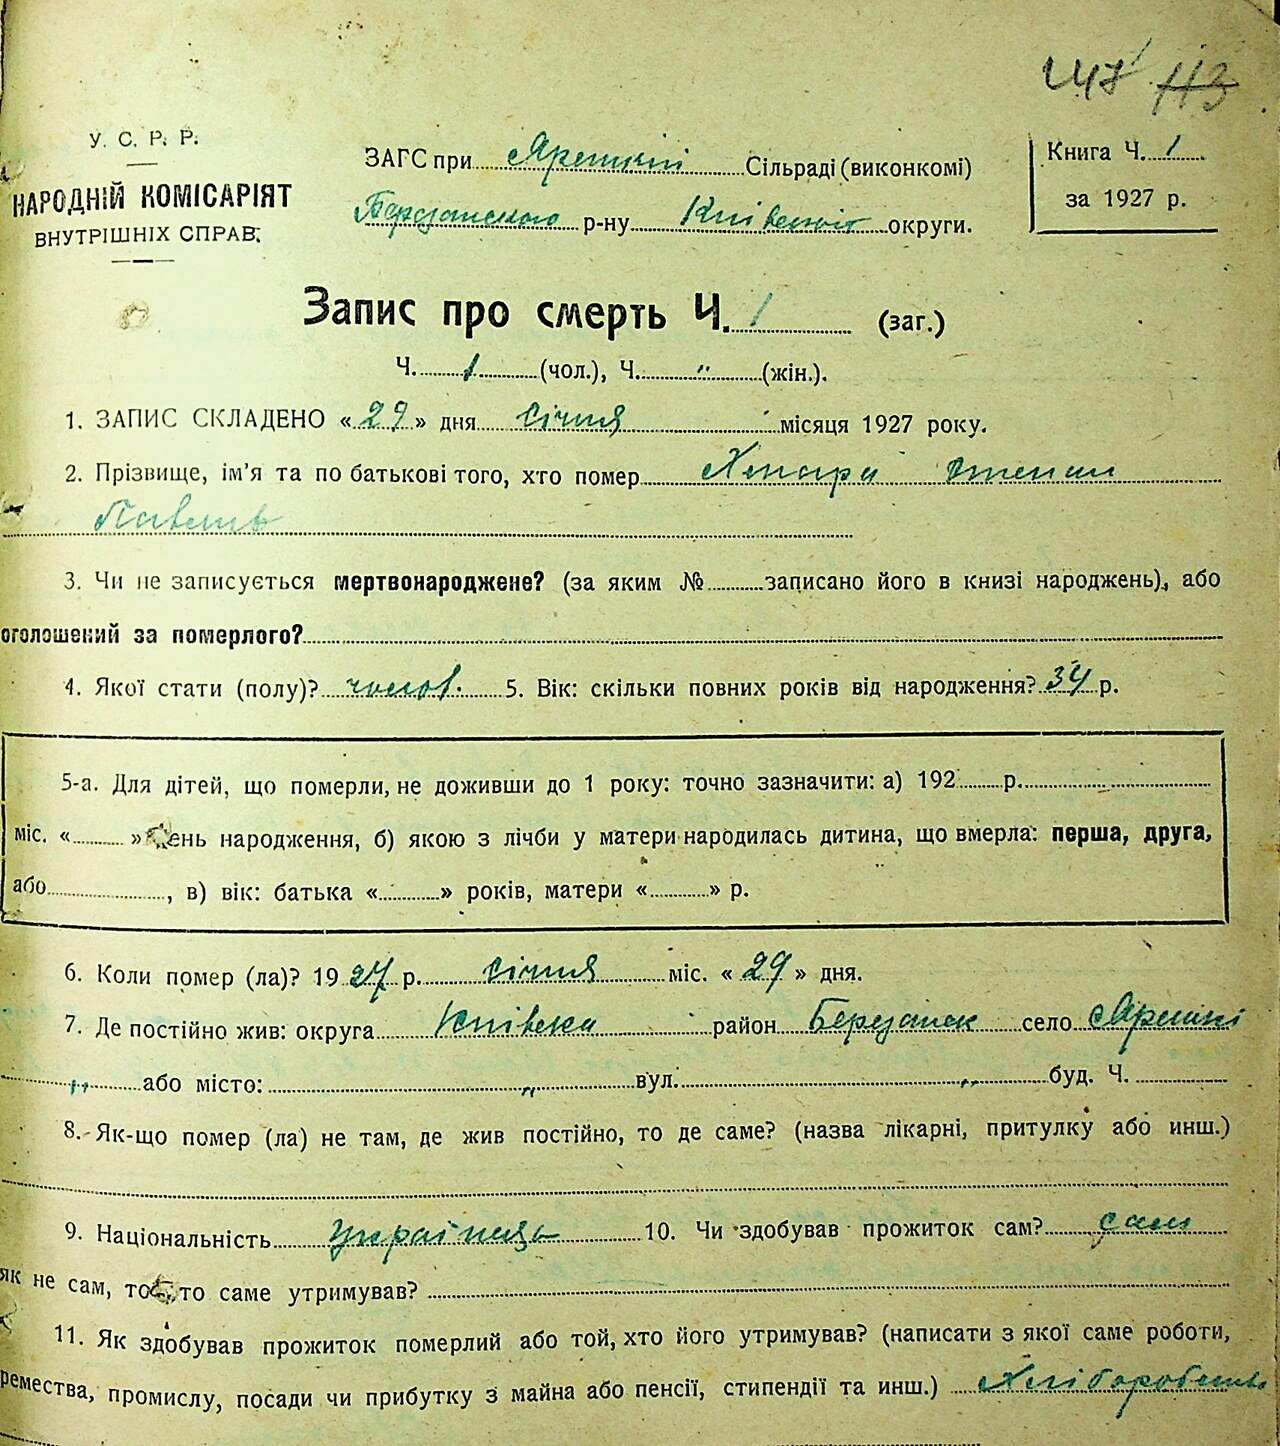 247 113
У. С. Р. Р.
НАРОДНІЙ КОМІСАРІЯТ
ВНУТРІШНІХ СПРАВ.
ЗАГС при Ярешкій Сільраді (виконкомі)
Березанського р-ну Київської округи.
Книга Ч. 1
за 1927 р.
Запис про смерть Ч. 1 (заг.)
Ч. 1 (чол.), Ч. " (жін.).
1. ЗАПИС СКЛАДЕНО « 29 » дня Січня місяця 1927 року.
2. Прізвище, ім'я та по батькові того, хто помер Степан
Павлів
3. Чи не записується мертвонароджене? (за яким № записано його в книзі народжень), або
оголошений за померлого?
4. Якої стати (полу)? чолов. 5. Вік: скільки повних років від народження? 34 р.
5-а. Для дітей, що померли, не доживши до 1 року: точно зазначити: а) 192 р.
міс. « » день народження, б) якою з лічби у матери народилась дитина, що вмерла: перша, друга,
або , в) вік: батька « » років, матери « » р.
6. Коли помер (ла)? 1927 р. Січня міс. « 29 » дня.
7. Де постійно жив: округа Київска район Березанск село Ярешкі
" або місто: " вул. " буд. Ч.
8. Як-що помер (ла) не там, де жив постійно, то де саме? (назва лікарні, притулку або инш.)
9. Національність Українець 10. Чи здобував прожиток сам? сам
як не сам, то хто саме утримував?
11. Як здобував прожиток померлий або той, хто його утримував? (написати з якої саме роботи,
ремества, промислу, посади чи прибутку з майна або пенсії, стипендії та инш.) Хліборобство